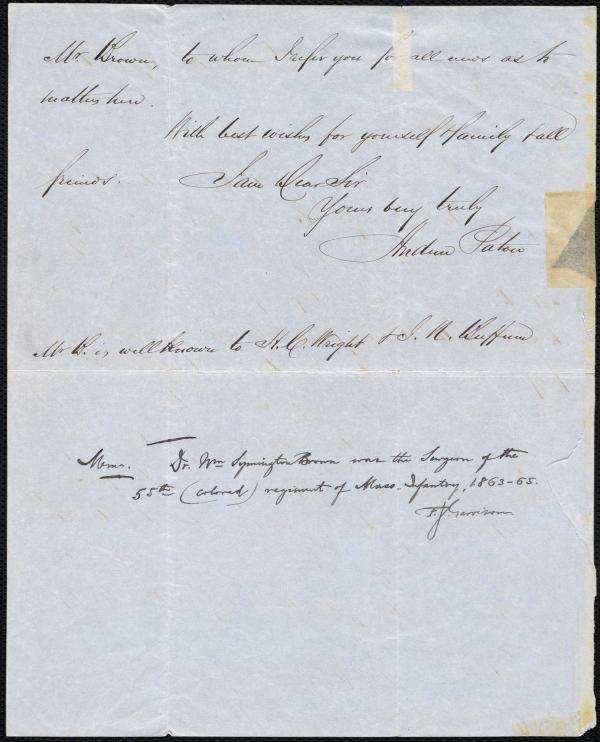 Mr. Brown, to whom I refer you for all news as to
matters here.
With best wishes for yourself & family & all
friends. I am Dear Sir
Yours very truly
Andrew Paton
Mr B. is well known to H. C. Wright & J. N. Buffum
Memo. Dr. Wm Symington Brown was the Surgeon of the
55th (colored) regiment of Mass. Infantry, 1863-65.
F. J. Garrison